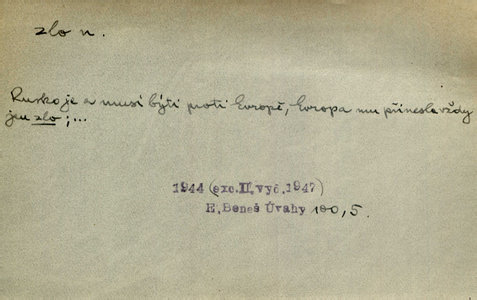 zlo n.
Rusko je a musí býti proti Evropě, Evropa mu přinesla vždy
jen zlo;...
1944 (exc.II.vyč.1947)
E. Beneš Úvahy 190,5.